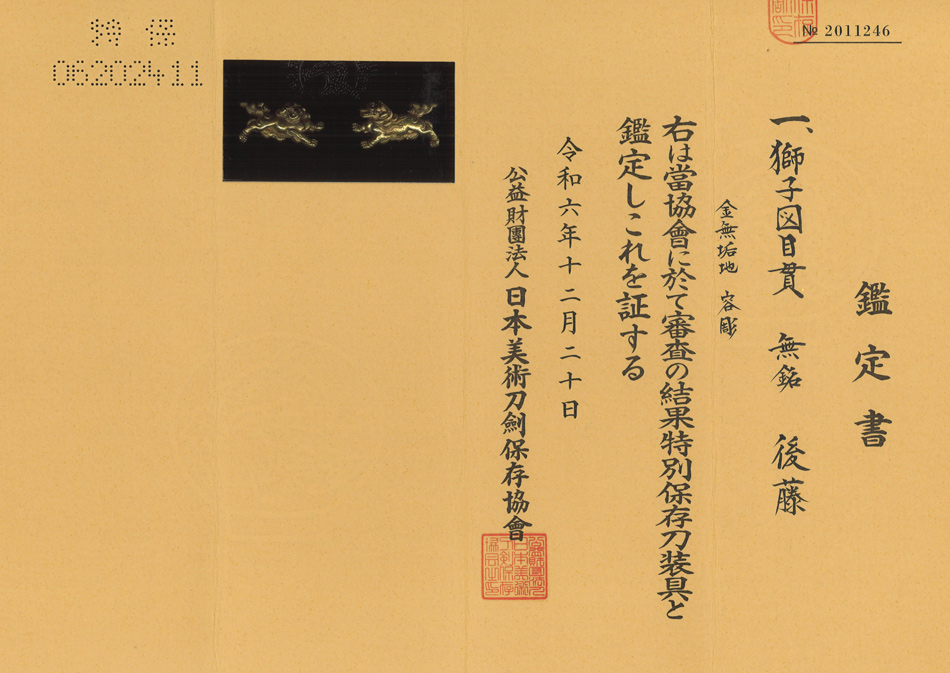 № 2011246
鑑定書
一、獅子図目貫 無銘 後藤
金無垢地 容彫
右は當協會に於て審査の結果特別保存刀装具と
鑑定しこれを証する
令和六年十二月二十日
公益財團法人 日本美術刀劍保存協會
特 保
06202411